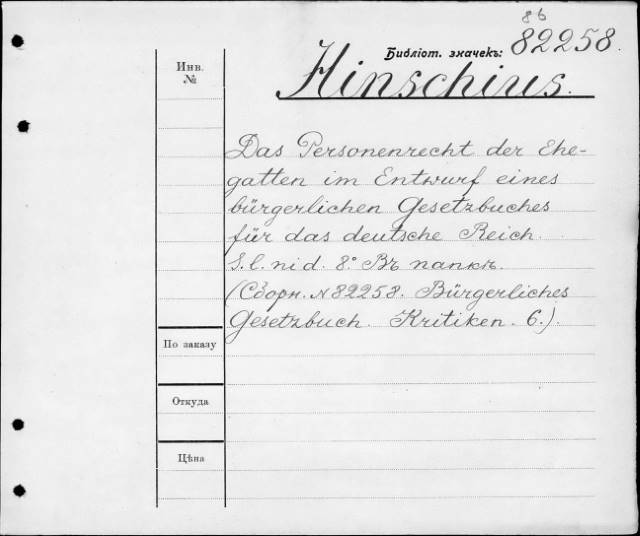 86
Библіот. значекъ: 82258.
Инв.
№
Hinschius.
Das Personenrecht der Ehe-
gatten im Entwurf eines
bürgerlichen Gesetzbuches
für das deutsche Reich.
S. l. ni d. 8° Въ папкѣ.
(Сборн. № 82258. Bürgerliches
Gesetzbuch. Kritiken. 6.).
По заказу
Откуда
Цѣна